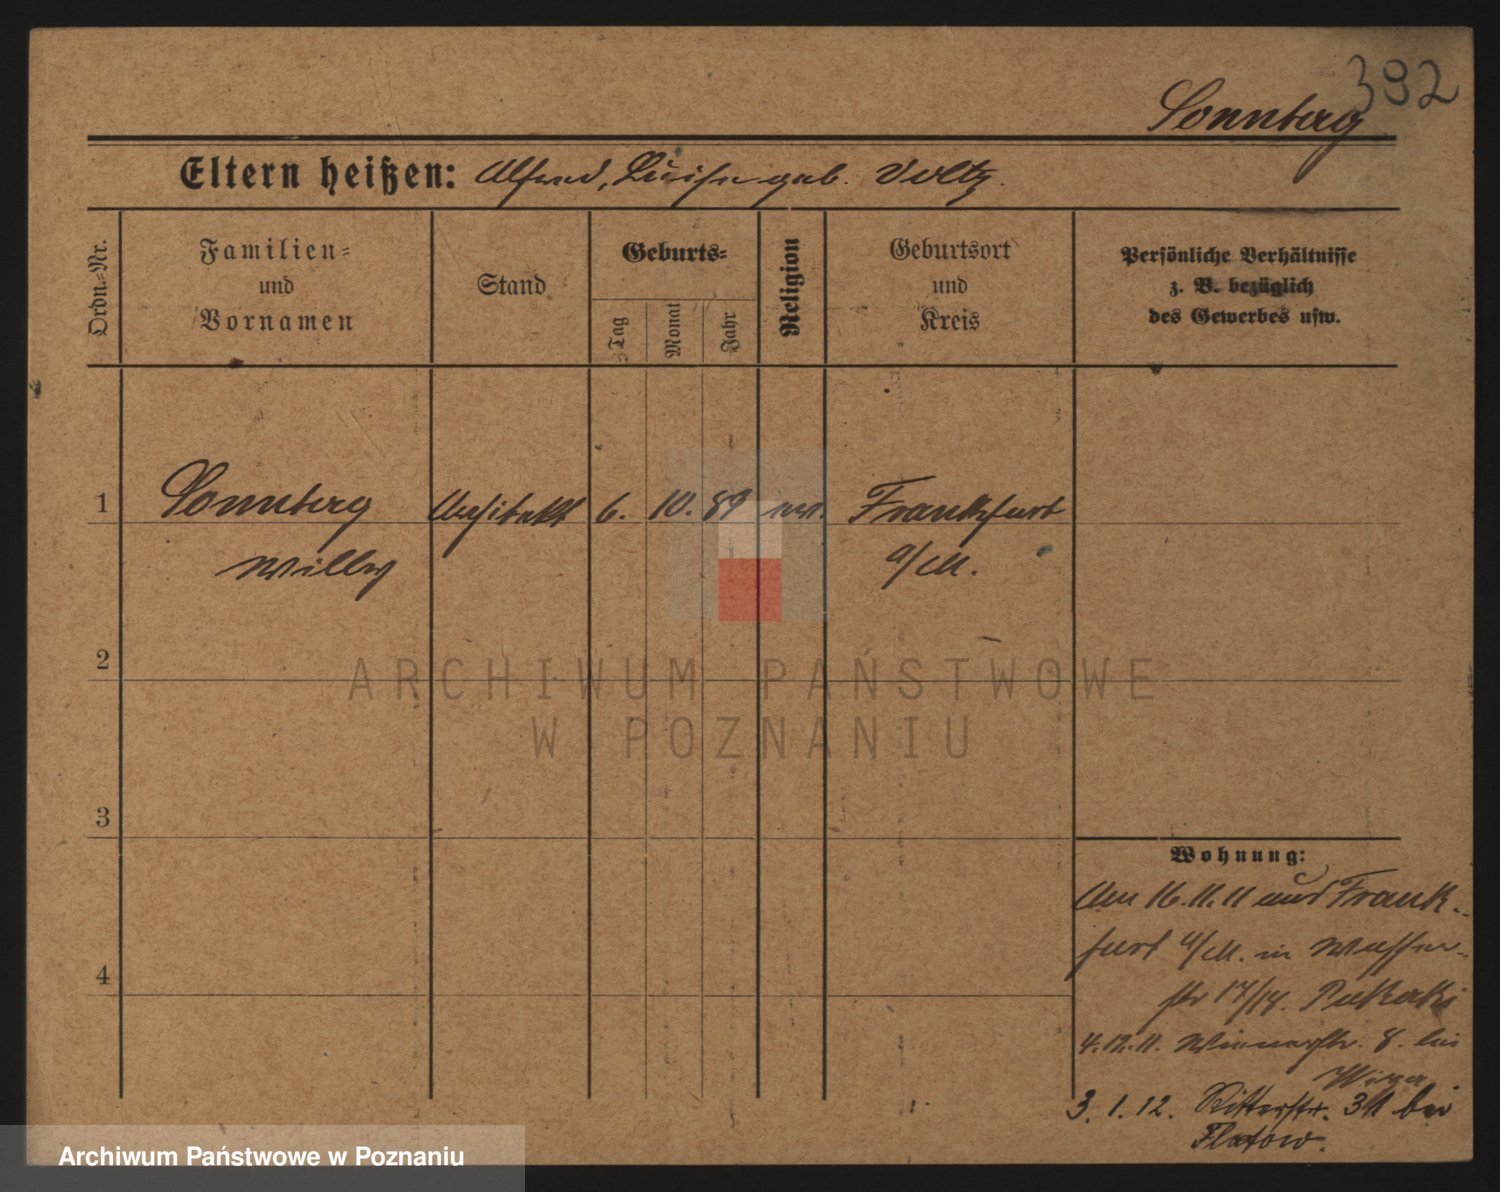 392
Sonnberg
Eltern heißen: Alfred, Luise geb. Voltz.
Ordn.-Nr.
Familien-
und
Vornamen
Stand
Geburts-
Tag
Monat
Jahr
Religion
Geburtsort
und
Kreis
Persönliche Verhältnisse
z. B. bezüglich
des Gewerbes usw.
1 Sonnberg Architekt 6. 10. 89 ev. Frankfurt
Willy a/M.
2
3
4
Wohnung:
Am 16.11.11 aus Frank-
furt a/M. in Wasser-
str 17/18.
4.12.11. Wienerstr. 8. bei
3. 1. 12. Ritterstr. 31 bei
Flatow.
ARCHIWUM PAŃSTWOWE
W POZNANIU
Archiwum Państwowe w Poznaniu